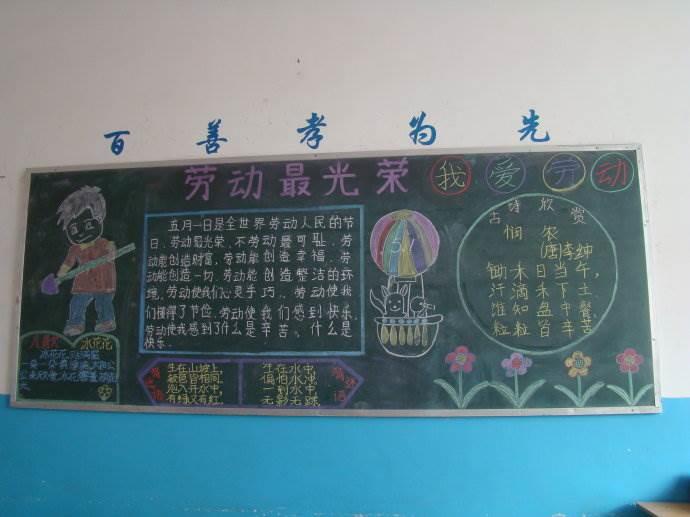 百善孝为先
劳动最光荣
我爱劳动
五月一日是全世界劳动人民的节
日,劳动最光荣、不劳动最可耻、劳
动能创造财富,劳动能创造幸福,劳
动能创造一切,劳动能创造整洁的环
境,劳动使我们心灵手巧,、劳动使我
们懂得了节俭、劳动使我们感到快乐,
劳动使我感到了什么是辛苦。什么是
快乐.
51
古诗欣赏
悯农
(唐)李绅
锄禾日当午,
汗滴禾下土
谁知盘中餐
粒粒皆辛苦
冰花花
生在山坡上,
皆相同,
泡入开水中
有绿又有红,
生在水中,
偏怕水冲
一到水中
无影无踪